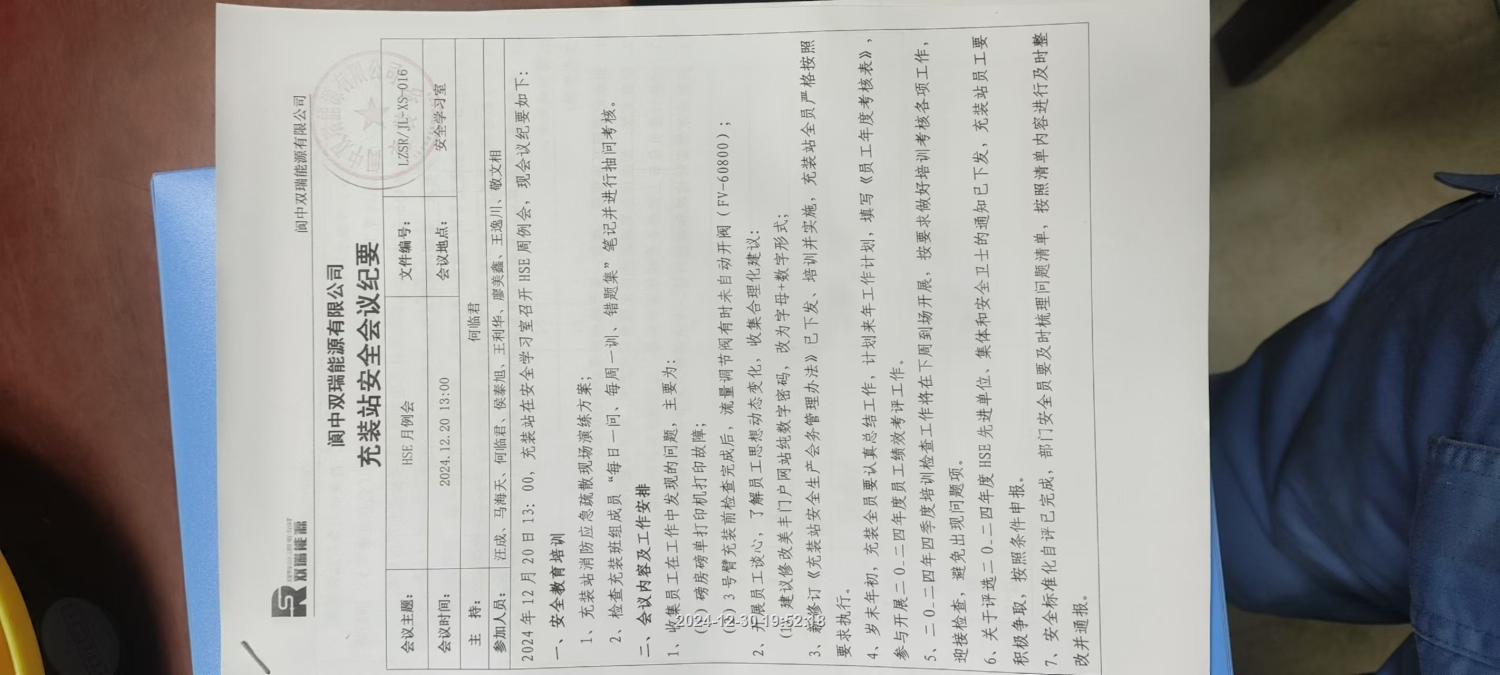 双瑞能源
阆中双瑞能源有限公司
阆中双瑞能源有限公司
充装站安全会议纪要
会议主题： HSE 月例会 文件编号： LZSR/JL-XS-016
会议时间： 2024.12.20 13:00 会议地点： 安全学习室
主 持： 何临君
参加人员： 汪成、马海天、何临君、侯泰旭、王利华、廖美鑫、王逸川、敬文相
2024 年 12 月 20 日 13：00，充装站在安全学习室召开 HSE 周例会，现会议纪要如下：
一、安全教育培训
1、充装站消防应急疏散现场演练方案；
2、检查充装班组成员“每日一问、每周一训、错题集”笔记并进行抽问考核。
二、会议内容及工作安排
1、收集员工在工作中发现的问题，主要为：
（1）磅房磅单打印机打印故障；
（2）3 号臂充装前检查完成后，流量调节阀有时未自动开阀（FV-60800）；
2、开展员工谈心，了解员工思想动态变化，收集合理化建议：
（1）建议修改美丰门户网站纯数字密码，改为字母+数字形式；
3、新修订《充装站安全生产会务管理办法》已下发、培训并实施，充装站全员严格按照
要求执行。
4、岁末年初，充装全员要认真总结工作，计划来年工作计划，填写《员工年度考核表》，
参与开展二 0 二四年度员工绩效考评工作。
5、二 0 二四年四季度培训检查工作将在下周到场开展，按要求做好培训考核各项工作，
迎接检查，避免出现问题项。
6、关于评选二 0 二四年度 HSE 先进单位、集体和安全卫士的通知已下发，充装站员工要
积极争取，按照条件申报。
7、安全标准化自评已完成，部门安全员要及时梳理问题清单，按照清单内容进行及时整
改并通报。
2024-12-30 19:52:18